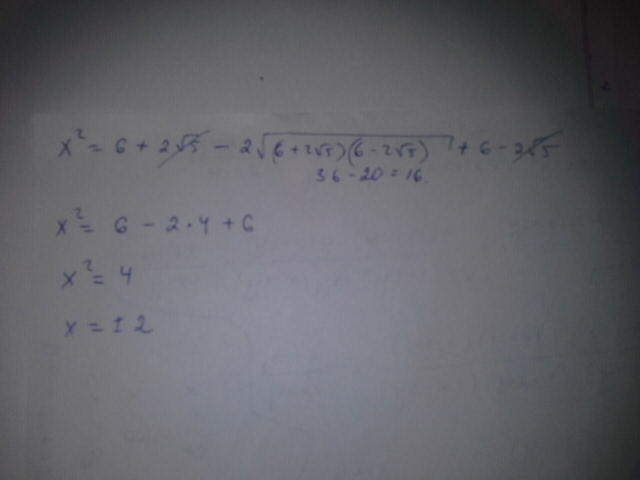 x² = 6 + 2√5 - 2√(6 + 2√5)(6 - 2√5) + 6 - 2√5
36 - 20 = 16
x² = 6 - 2 · 4 + 6
x² = 4
x = ± 2